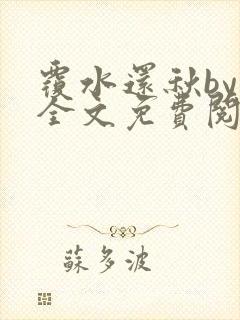 覆水還秋by
全文免費閱
蘇多波